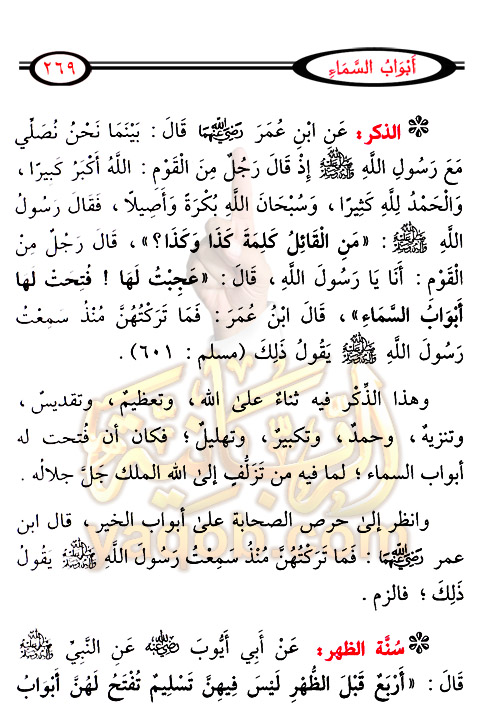 أَبْوَابُ السَّمَاءِ
٢٦٩
الذكر: عَنِ ابْنِ عُمَرَ رَضِيَ اللَّهُ عَنْهُمَا قَالَ: بَيْنَمَا نَحْنُ نُصَلِّي
مَعَ رَسُولِ اللَّهِ ﷺ إِذْ قَالَ رَجُلٌ مِنَ الْقَوْمِ: اللَّهُ أَكْبَرُ كَبِيرًا،
وَالْحَمْدُ لِلَّهِ كَثِيرًا، وَسُبْحَانَ اللَّهِ بُكْرَةً وَأَصِيلًا، فَقَالَ رَسُولُ
اللَّهِ ﷺ: «مَنِ الْقَائِلُ كَلِمَةَ كَذَا وَكَذَا؟»، قَالَ رَجُلٌ مِنَ
الْقَوْمِ: أَنَا يَا رَسُولَ اللَّهِ، قَالَ: «عَجِبْتُ لَهَا! فُتِحَتْ لها
أَبْوَابُ السَّمَاءِ»، قَالَ ابْنُ عُمَرَ: فَمَا تَرَكْتُهُنَّ مُنْذُ سَمِعْتُ
رَسُولَ اللَّهِ ﷺ يَقُولُ ذَلِكَ (مسلم: ٦٠١).
وهذا الذِّكْر فيه ثناءٌ على الله، وتعظيمٌ، وتقديسٌ،
وتنزيهٌ، وحمدٌ، وتكبيرٌ، وتهليلٌ؛ فكان أن فُتحت له
أبواب السماء؛ لما فيه من تَزَلُّفٍ إلى الله الملك جَلَّ جلالُه.
وانظر إلى حرص الصحابة على أبواب الخير، قال ابن
عمر رَضِيَ اللَّهُ عَنْهُمَا: فَمَا تَرَكْتُهُنَّ مُنْذُ سَمِعْتُ رَسُولَ اللَّهِ ﷺ يَقُولُ
ذَلِكَ؛ فالزم.
سُنَّة الظهر: عَنْ أَبِي أَيُّوبَ رَضِيَ اللَّهُ عَنْهُ عَنِ النَّبِيِّ ﷺ
قَالَ: «أَرْبَعٌ قَبْلَ الظُّهْرِ لَيْسَ فِيهِنَّ تَسْلِيمٌ تُفْتَحُ لَهُنَّ أَبْوَابُ